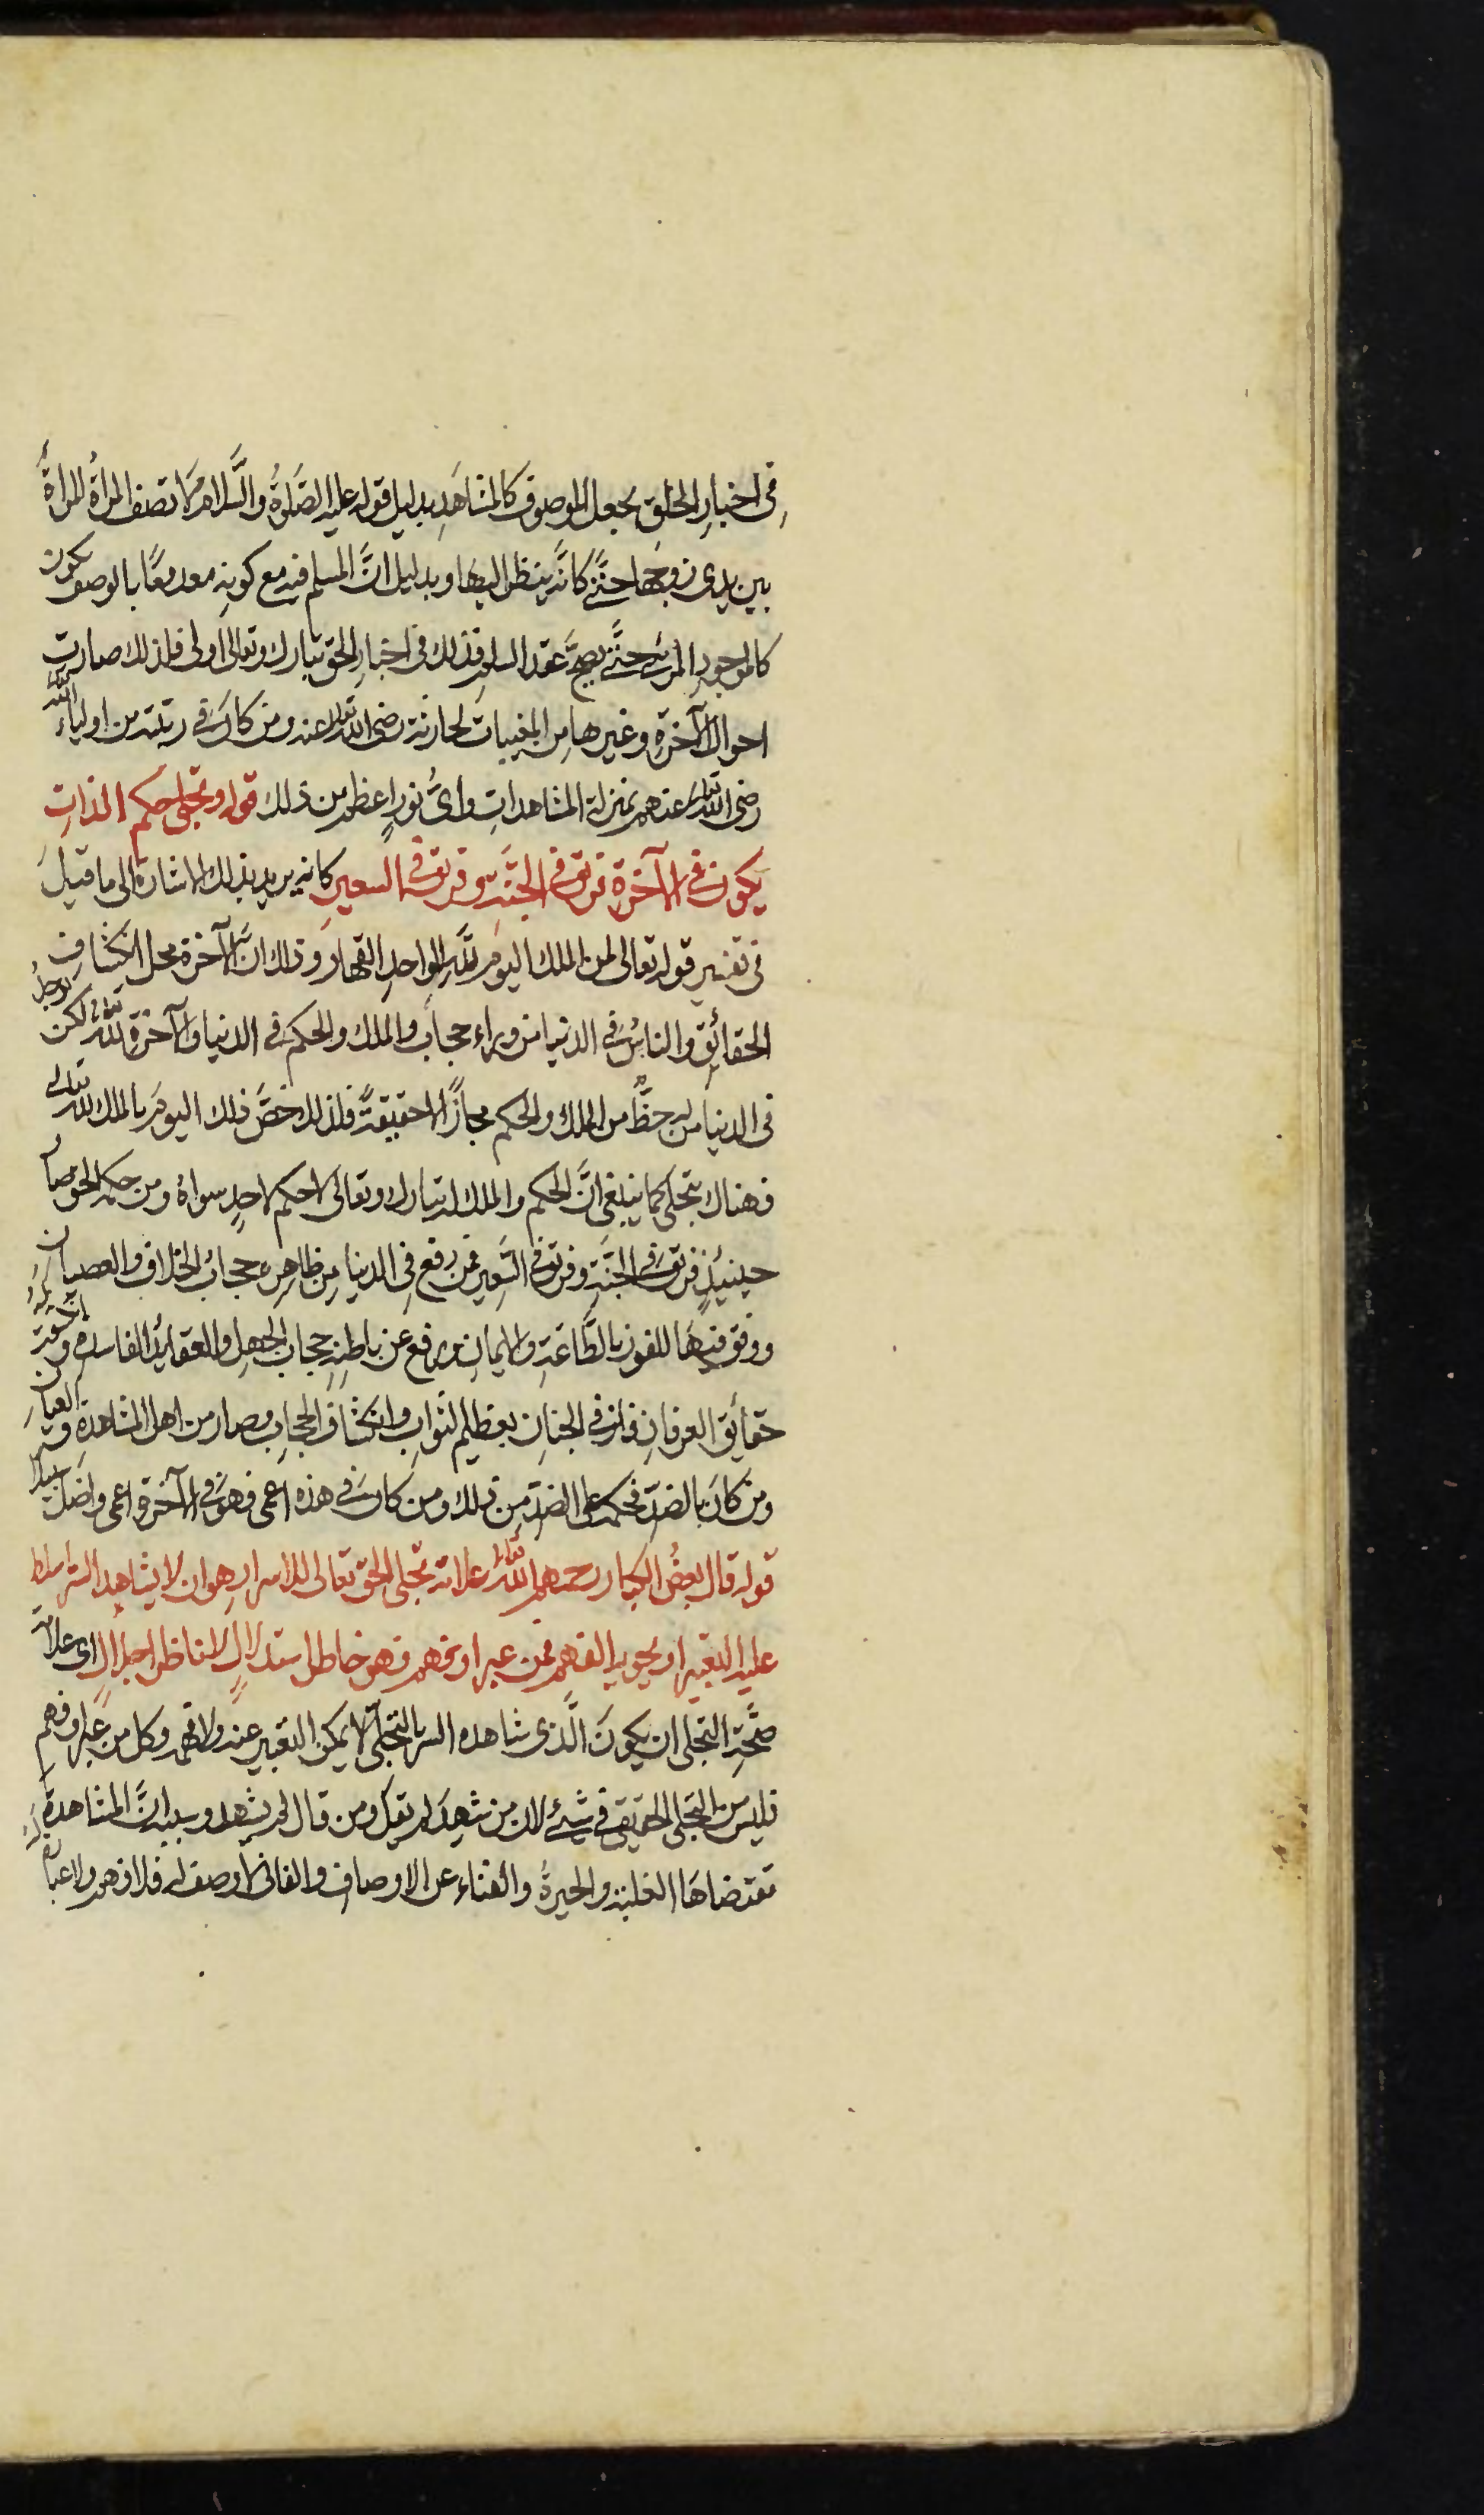 في اخبارِ الخلقِ يجعل الموصوف كالمشاهَدِ بدليل قوله عليه الصَّلوةُ والسَّلامُ لا تصف المرأةُ المرأةَ
بين يدى زوجها حتَّى كانَّه ينظر اليها وبدليل انَّ المسلم فيه مع كونِه معدومًا بالوصف يكون
كالموجودِ المرئي حتَّى يصحَّ عقد السلم فذلك في اخبارِ الحق تبارك وتعالى اولى فلذلك صارت
احوالُ الآخرةِ وغيرها من المغيبات لحارثة رضى الله تعالى عنه ومن كان في رتبته من اولياء الله
رضى الله تعالى عنهم بمنزلة المشاهداتِ واىُّ نورٍ اعظم من ذلك قوله وتجلى حكم الذاتِ
يكون في الآخرة فريق في الجنَّة وفريق في السعير كانه يريد بذلك الاشارة الى ما قيل
في تفسير قوله تعالى لمن الملك اليوم للّٰهِ الواحدِ القهار وذلك انَّ الآخرة محل انكشاف
الحقائقِ والناسُ في الدنيا من وراء حجاب والملك والحكم في الدنيا والآخرة للّٰه تعالى لكن يوجدُ
في الدنيا من له حظٌّ من الملك والحكم مجازًا لا حقيقةً فلذلك خصَّ ذلك اليومَ بالملك للّٰه تعالى
فهناك يتجلى كما ينبغي انَّ الحكم والملك له تبارك وتعالى لا حكم لاحدٍ سواهُ ومن حكمه الحق صار
حينئذٍ فريق في الجنَّةِ وفريق في السَّعير فمن رفع في الدنيا مِن ظاهِرِه حجابُ الخلاف والعصيان
ووفق فيها للفوز بالطَّاعةِ والايمان ورفع عن باطنِهِ حجاب الجهلِ والعقائد الفاسدة
حقائق العرفانِ فاز في الجنانِ بعظيم الثوابِ وانكشاف الحجابِ وصار من اهل المشاهدةِ والعيان
ومن كان بالضدِّ فحكمه على الضدِّ من ذلك ومن كان في هذه اعمى فهو في الآخرة اعمى واضل سبيلا
قوله قال بعضُ الكبار رحمهم الله تعالى علامة تجلى الحق تعالى للاسرارِ هو ان لا يشاهد السّر ما يتسلط
عليه التعبير او يحويه الفهم فمن عبر او فهم فهو خاطر استدلالٍ لا ناظر اجلالٍ اى علامة
صحَّةِ التجلى ان يكونَ الَّذى شاهده السر بالتجلّى لا يمكن التعبير عنه ولا فهمه وكل من عبَّر او فهم
فليس من التجلى الحقيقي في شئٍ لان من شهِدَ لم يقل ومن قال لم يشهد وسببه انَّ المشاهدةَ
مقتضاها الغلبة والحيرةُ والفناء عن الاوصاف والفاني لا وصف له فلا فهم ولا عبارة له